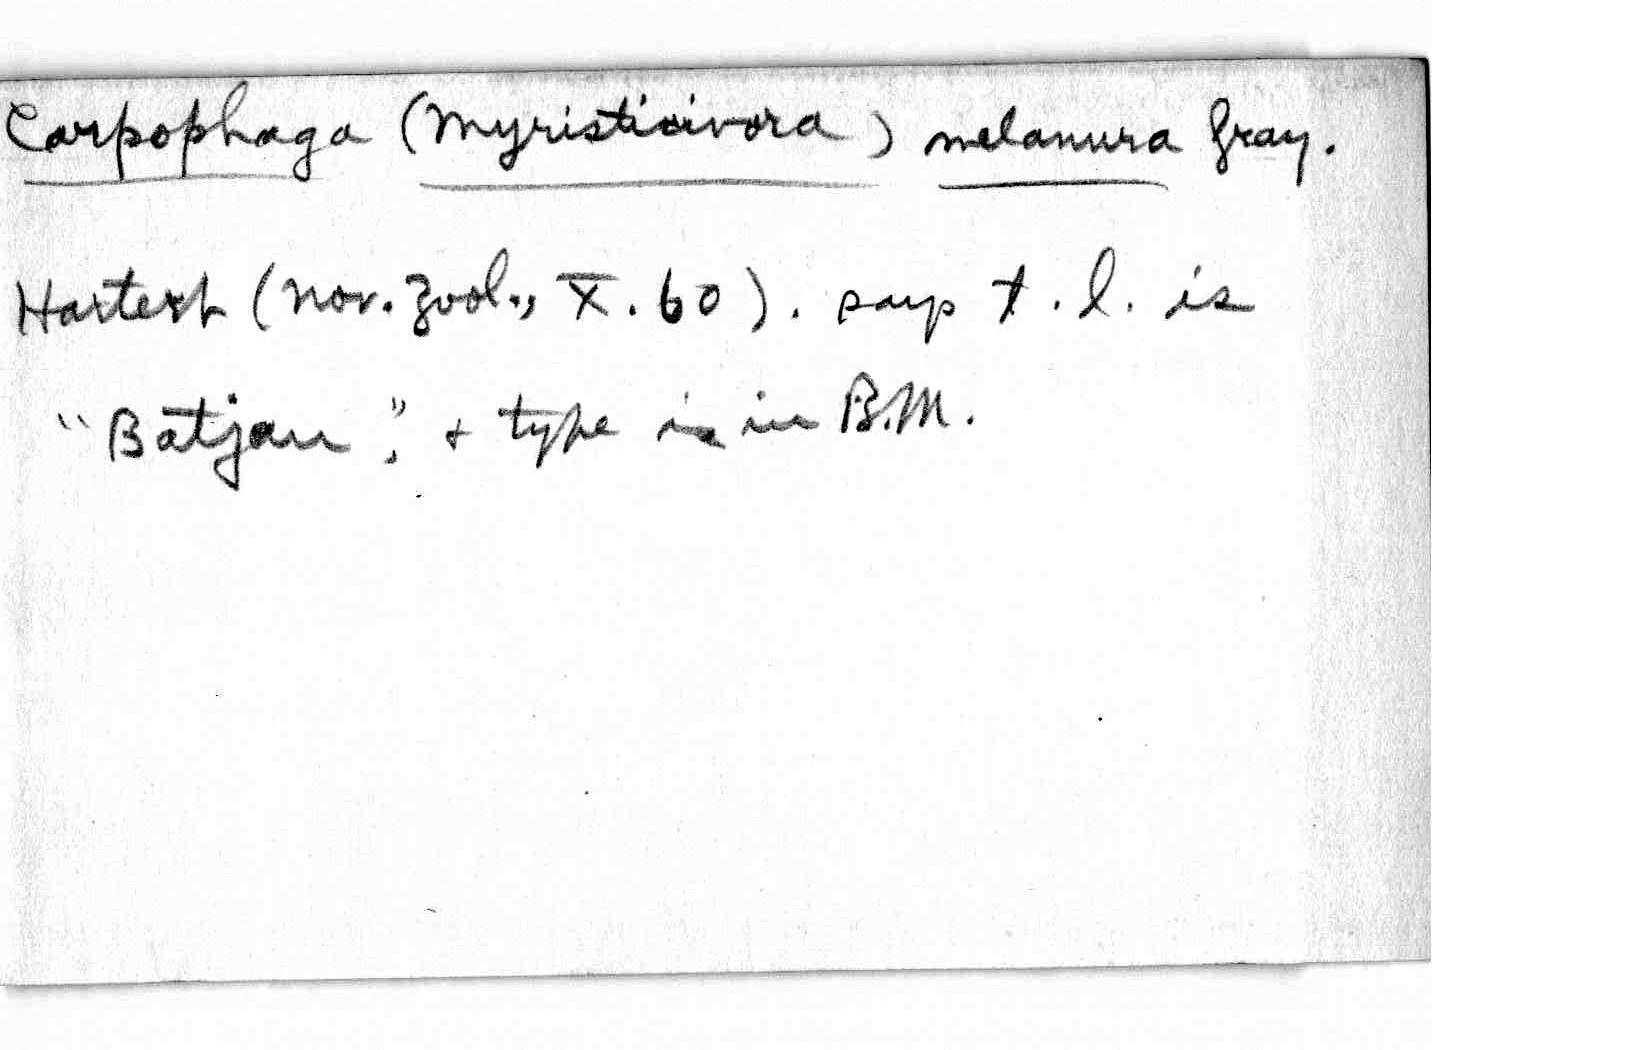 Carpophaga (Myristicivora) melanura Gray.
Hartert (Nov. Zool., X. 60). says t. l. is
"Batjan", & type is in B.M.